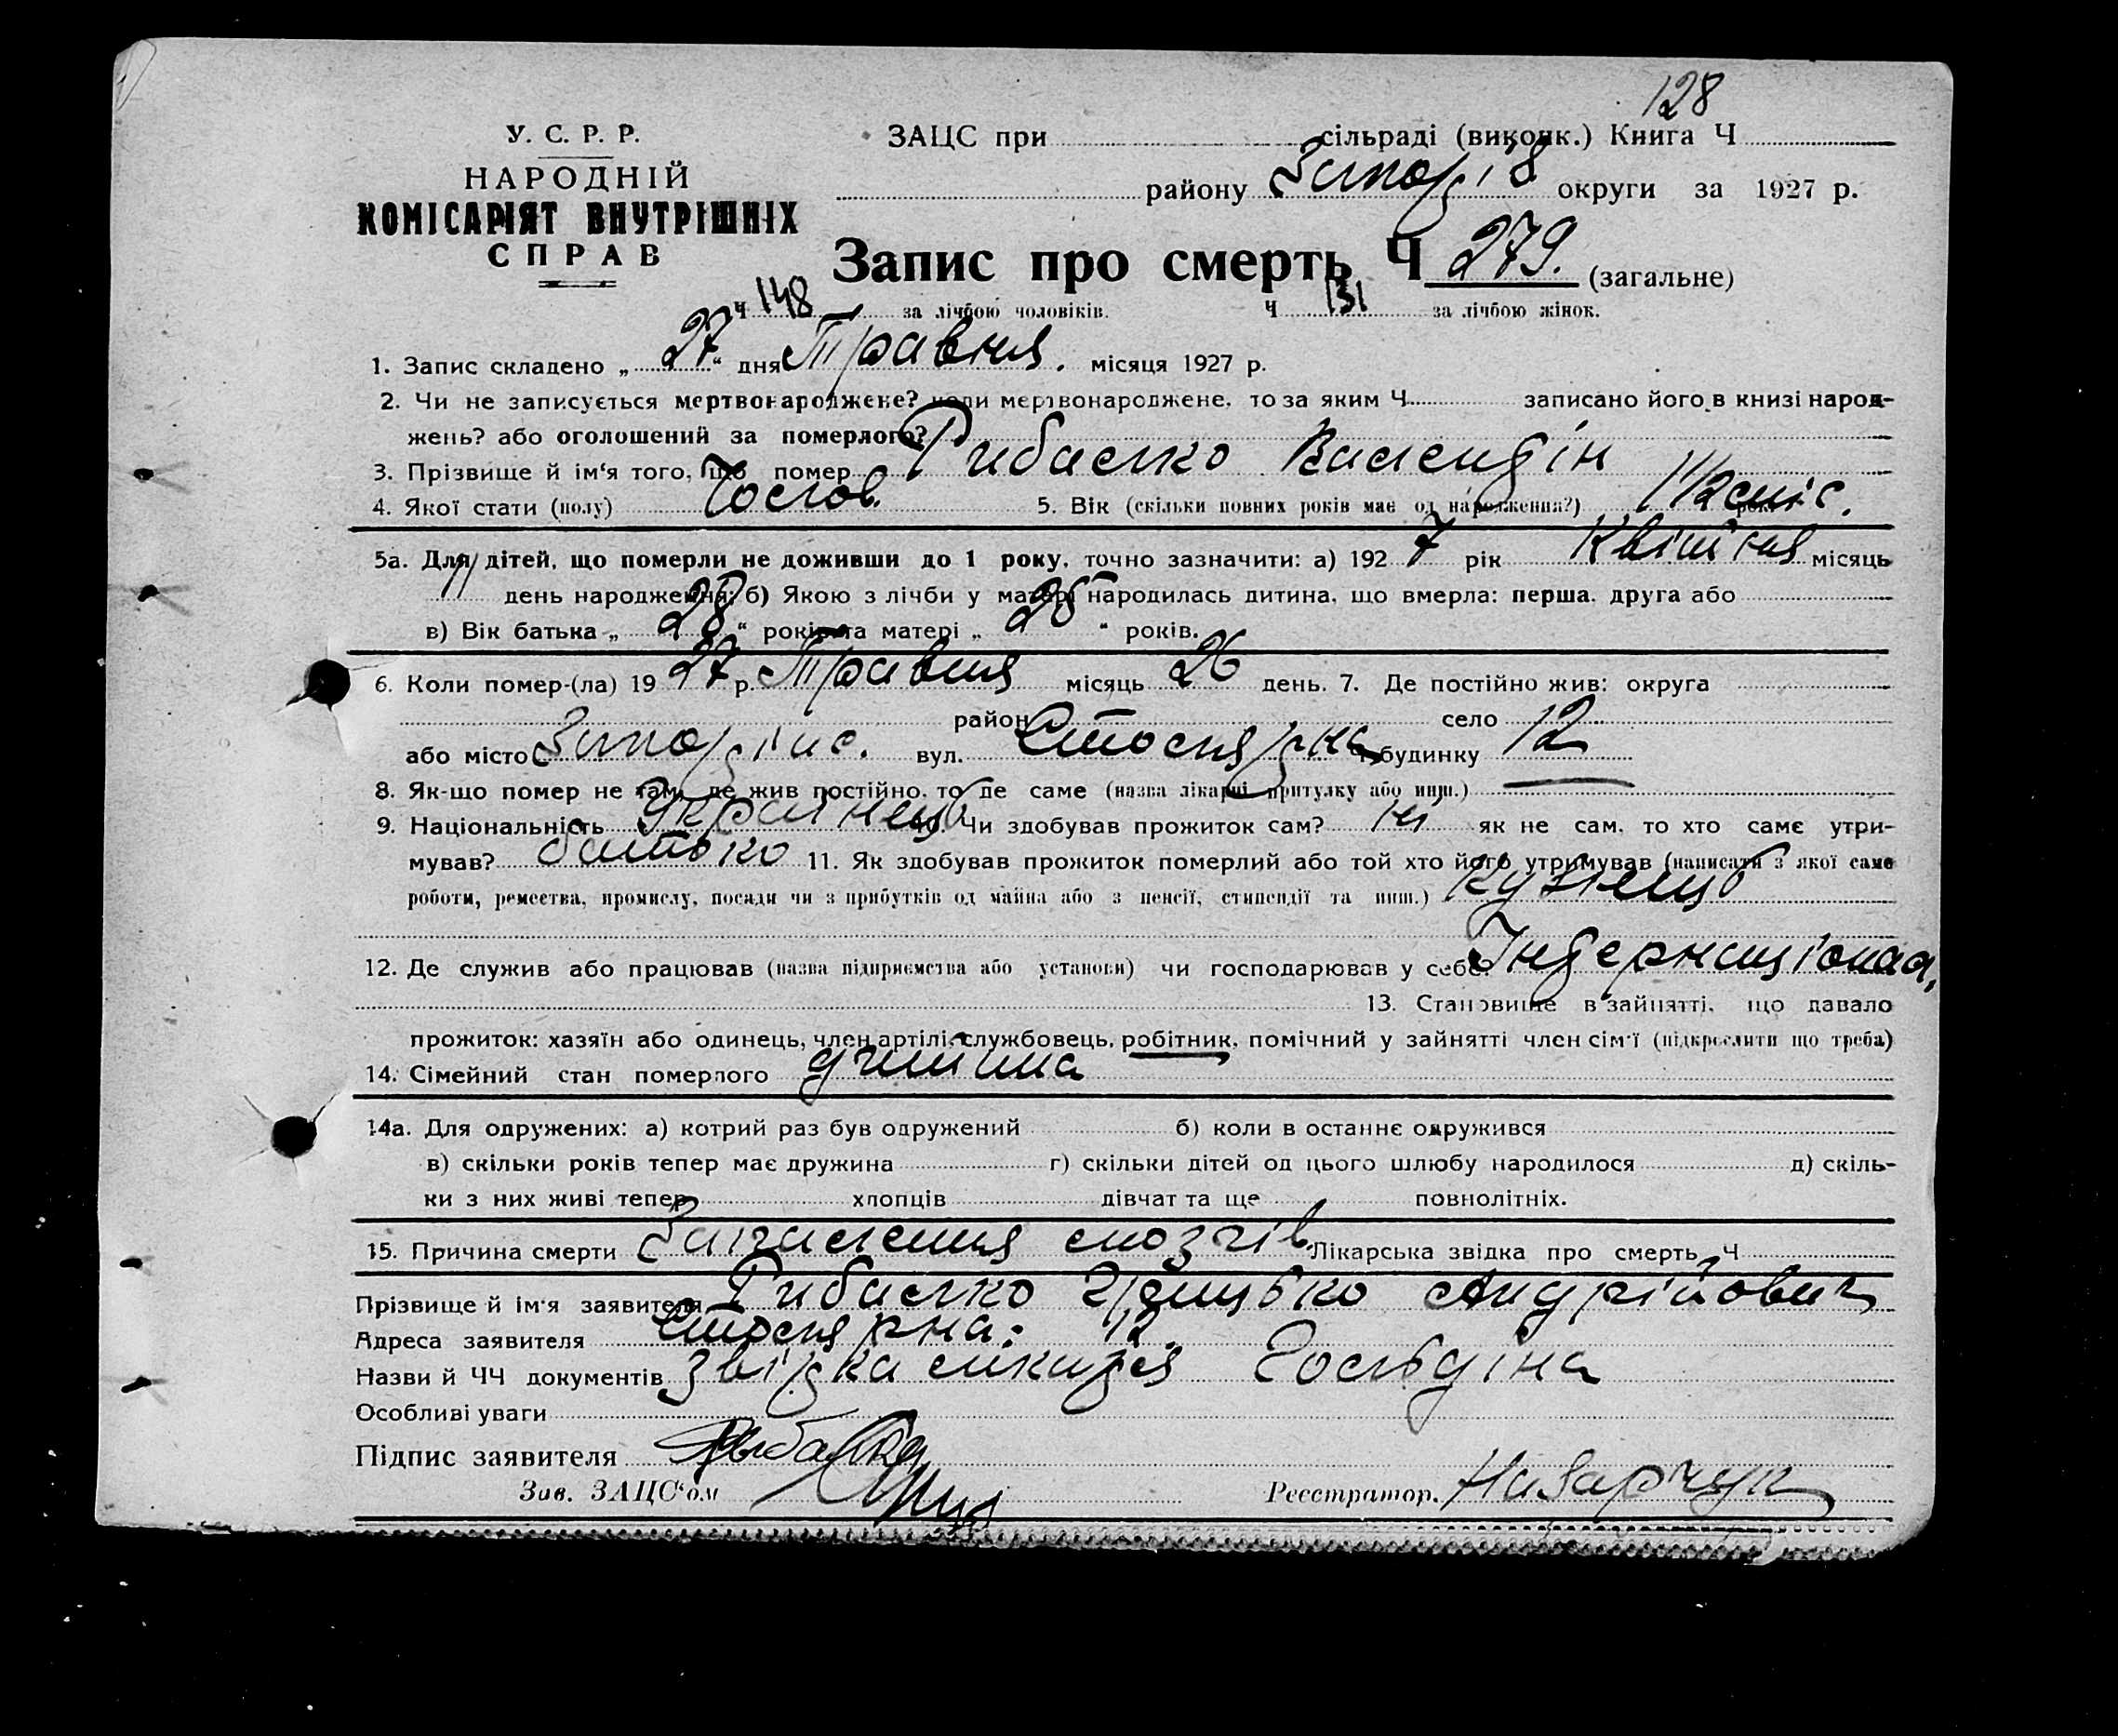 128
У. С. Р. Р.
ЗАЦС при сільраді (виконк.) Книга Ч
НАРОДНІЙ
району Запоріз. округи за 1927 р.
КОМІСАРІЯТ ВНУТРІШНІХ
СПРАВ
Запис про смерть Ч 279. (загальне)
Ч 148 за лічбою чоловіків. Ч 131 за лічбою жінок.
1. Запис складено „ 27 “ дня Травня. місяця 1927 р.
2. Чи не записується мертвонароджене? коли мертвонароджене, то за яким Ч записано його в книзі народ-
жень? або оголошений за померлого?
3. Прізвище й ім‘я того, що помер Рибалко Валендін
4. Якої стати (полу) Чолов. 5. Вік (скільки повних років має од народження?) 1 1/2 міс.
5а. Для дітей, що померли не доживши до 1 року, точно зазначити: а) 192 7 рік Квітня місяць
11 день народження; б) Якою з лічби у матері народилась дитина, що вмерла: перша, друга або
в) Вік батька „ 28 “ років та матері „ 25 “ років.
6. Коли помер-(ла) 19 27 р. Травня місяць 26 день. 7. Де постійно жив: округа
район село
або місто Запоріжє. вул. Столярна будинку 12
8. Як-що помер не там, де жив постійно, то де саме (назва лікарні притулку або инш.)
9. Національність Українець 10. Чи здобував прожиток сам? ні як не сам, то хто саме утри-
мував? батько 11. Як здобував прожиток померлий або той хто його утримував (написати з якої саме
роботи, ремества, промислу, посади чи з прибутків од майна або з пенсії, стипендії та инш.) Кузнець
12. Де служив або працював (назва підприємства або установи) чи господарював у себе. Індернаціонал,
13. Становище в зайнятті, що давало
прожиток: хазяїн або одинець, член артілі, службовець, робітник, помічний у зайнятті член сім‘ї (підкреслити що треба)
14. Сімейний стан померлого дитина
14а. Для одружених: а) котрий раз був одружений б) коли в останнє одружився
в) скільки років тепер має дружина г) скільки дітей од цього шлюбу народилося д) скіль-
ки з них живі тепер хлопців дівчат та ще повнолітніх.
15. Причина смерти Запалення мозгів. Лікарська звідка про смерть Ч
Прізвище й ім‘я заявителя Рибалко Грицько Андрійович
Адреса заявителя Столярна: 12.
Назви й ЧЧ документів звідка лікаря Гольдіна
Особливі уваги
Підпис заявителя Рыбалко
Зав. ЗАЦС‘ом Реєстратор. Назарчук